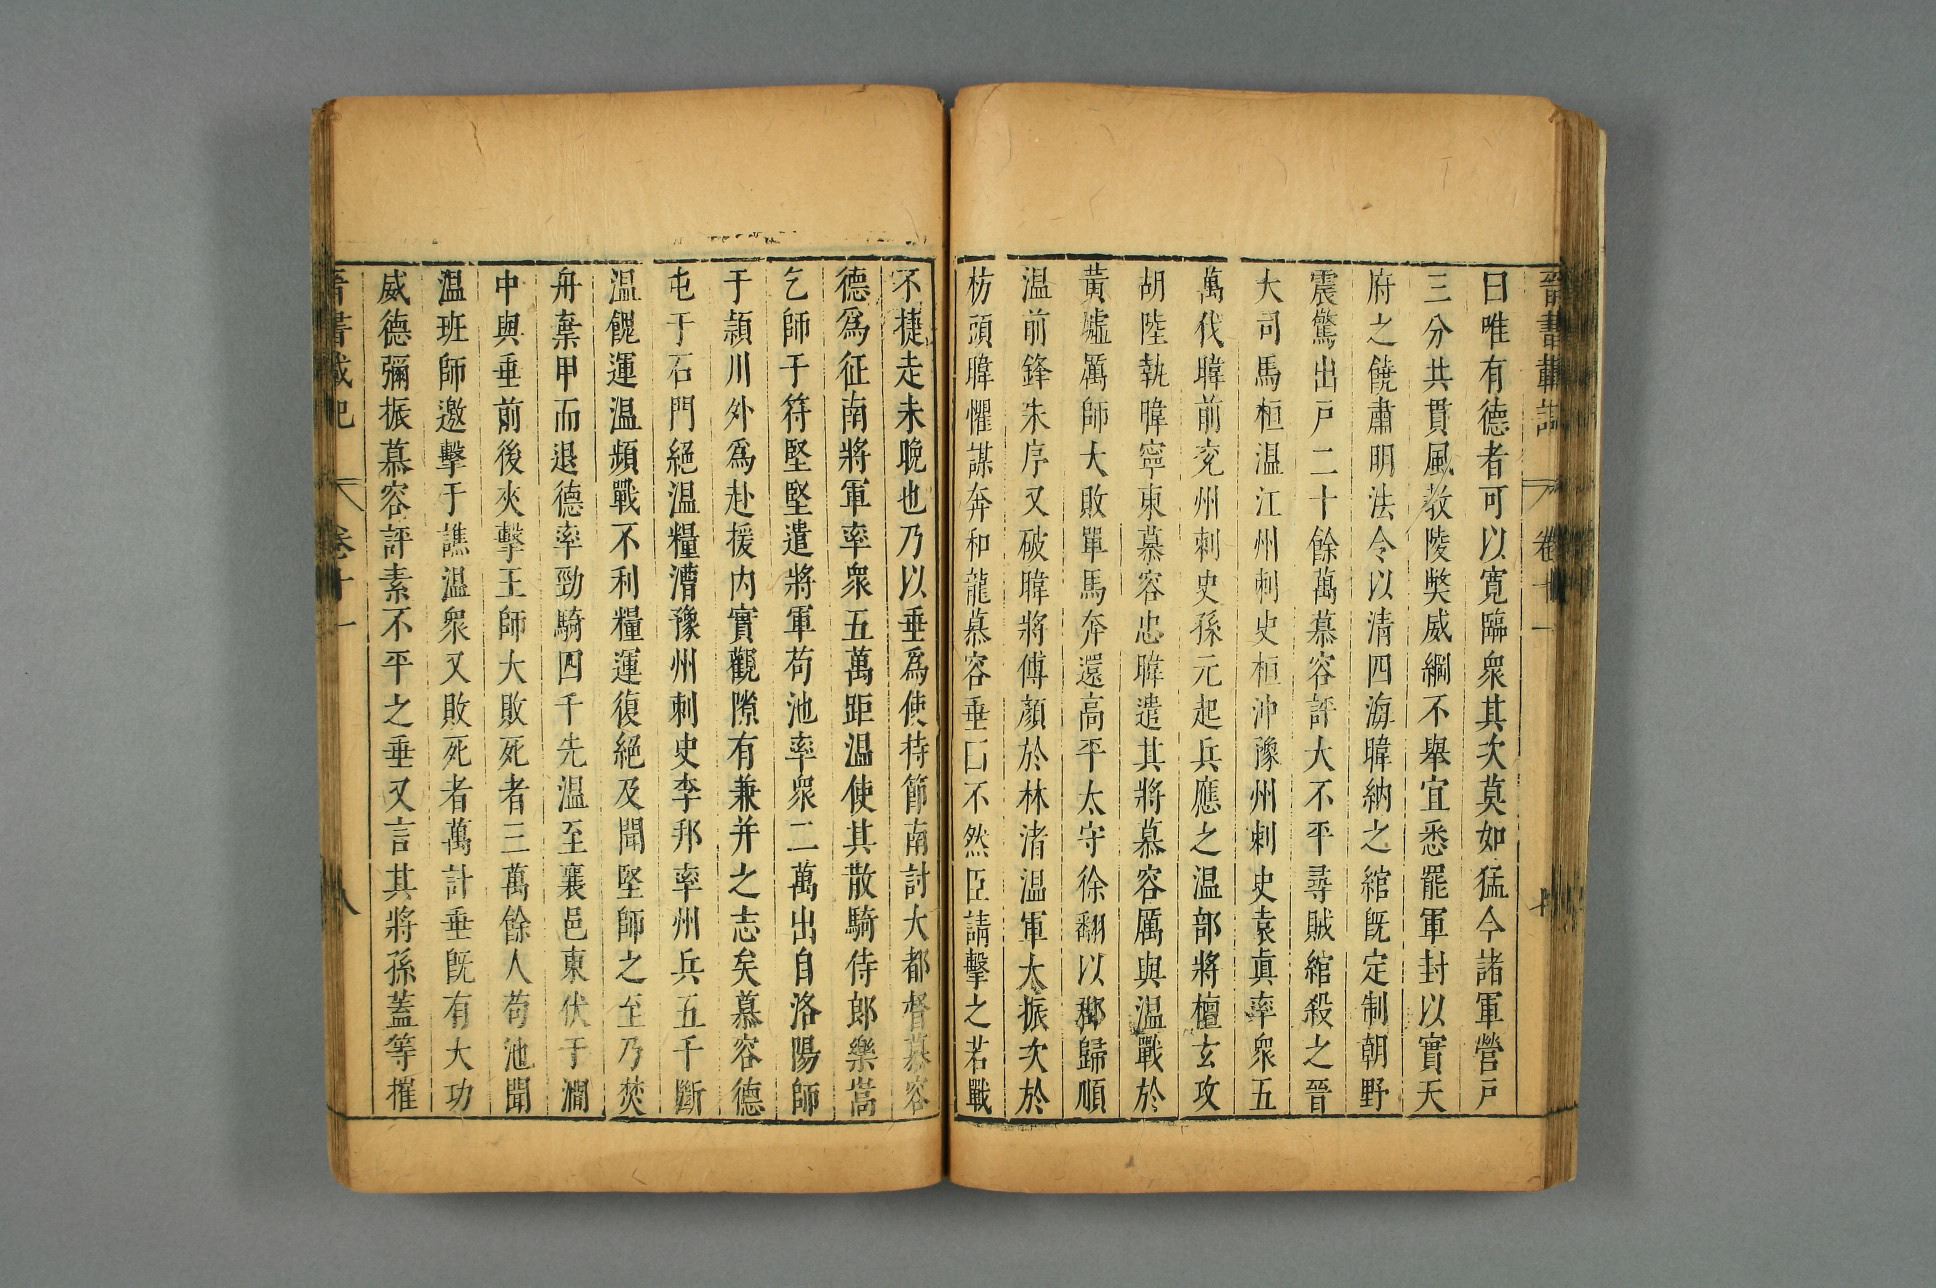 晉書載記 卷十一 七
曰唯有德者可以寬臨衆其次莫如猛今諸軍營戸
三分共貫風教陵獘威綱不舉宜悉罷軍封以實天
府之饒肅明法令以清四海暐納之綰旣定制朝野
震驚出戸二十餘萬慕容評大不平尋賊綰殺之晉
大司馬桓温江州刺史桓沖豫州刺史袁眞率衆五
萬伐暐前兗州刺史孫元起兵應之温部將檀玄攻
胡陸執暐寧東慕容忠暐遣其將慕容厲與温戰於
黃墟厲師大敗單馬奔還高平太守徐翻以郡歸順
温前鋒朱序又破暐將傅顔於林渚温軍大振次於
枋頭暐懼謀奔和龍慕容垂曰不然臣請擊之若戰
不捷走未晚也乃以垂爲使持節南討大都督慕容
德爲征南將軍率衆五萬距温使其散騎侍郎樂嵩
乞師于苻堅堅遣將軍苟池率衆二萬出自洛陽師
于潁川外爲赴援內實觀隙有兼并之志矣慕容德
屯于石門絕温糧漕豫州刺史李邦率州兵五千斷
温餽運温頻戰不利糧運復絕及聞堅師之至乃焚
舟棄甲而退德率勁騎四千先温至襄邑東伏于澗
中與垂前後夾擊王師大敗死者三萬餘人苟池聞
温班師邀擊于譙温衆又敗死者萬計垂旣有大功
威德彌振慕容評素不平之垂又言其將孫蓋等摧
晉書載記 卷十一 八